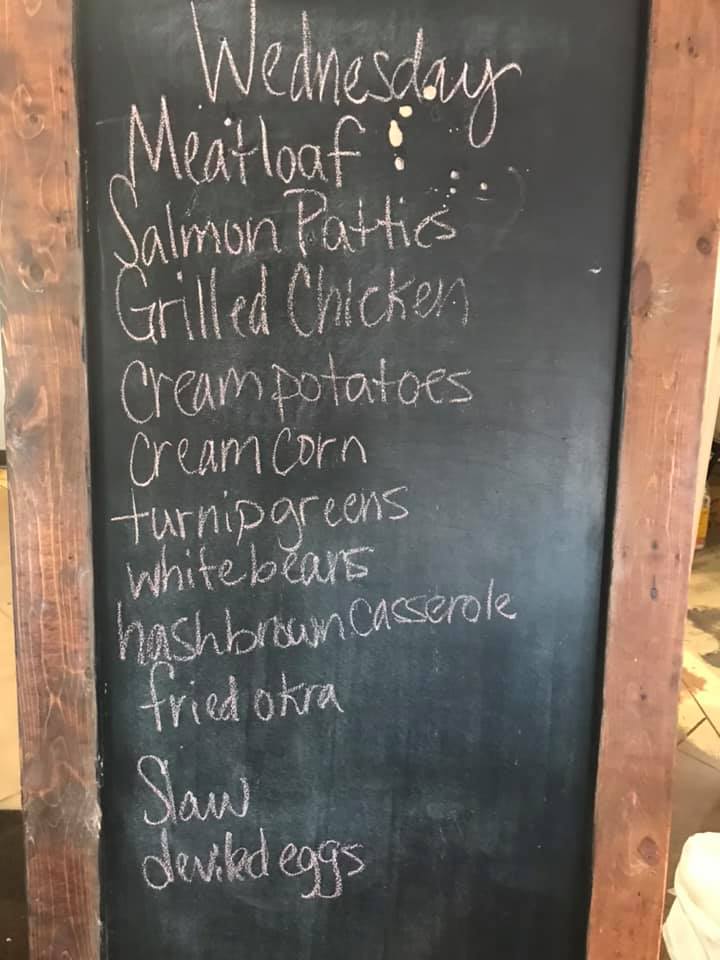 Wednesday
Meatloaf
Salmon Patties
Grilled Chicken
Cream potatoes
Cream Corn
turnip greens
white beans
hashbrown Casserole
fried okra
Slaw
deviled eggs